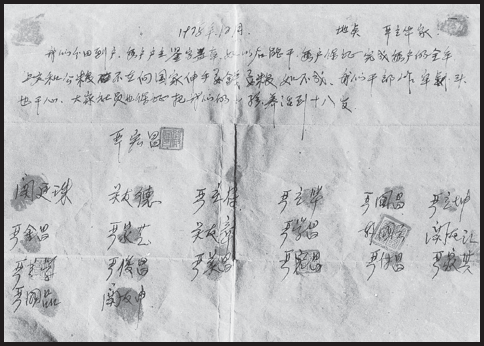 1978年12月 地点 严立华家
我们分田到户，每户户主签字盖章，如以后能干，每户保证完成每户的全年
上交和公粮，不在向国家伸手要钱要粮，如不成，我们干部作牢刹头
也干心，大家社员也保证把我们的小孩养活到十八岁。
严宏昌
关廷珠 关友德 严立付 严立华 严国昌 严立坤
严金昌 严家芝 关友章 严学昌 韩国云 关友江
严立学 严俊昌 严美昌 严宏昌 严付昌 严家其
严国品 关友坤